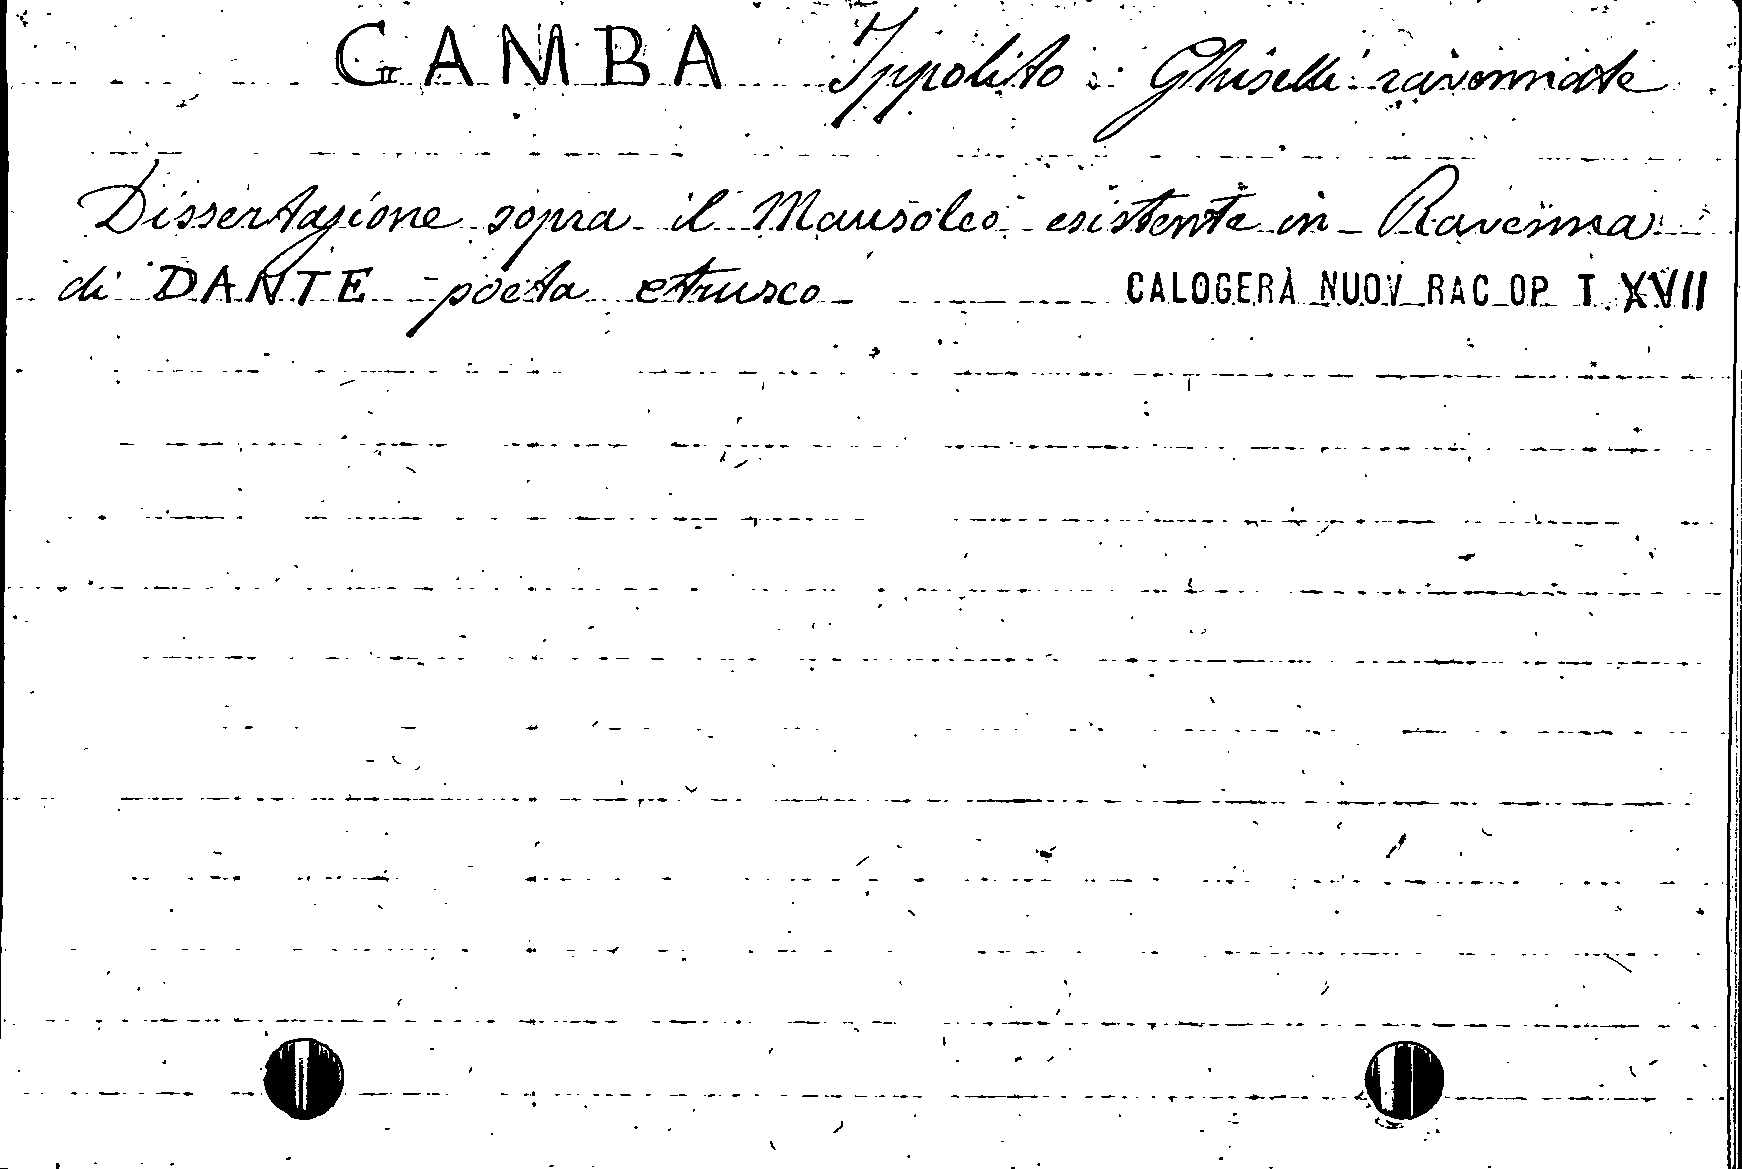 GAMBA Ippolito Ghiselli ravennate
Dissertazione sopra il Mausoleo esistente in Ravenna
di DANTE poeta etrusco CALOGERÀ NUOV RAC OP T XVII